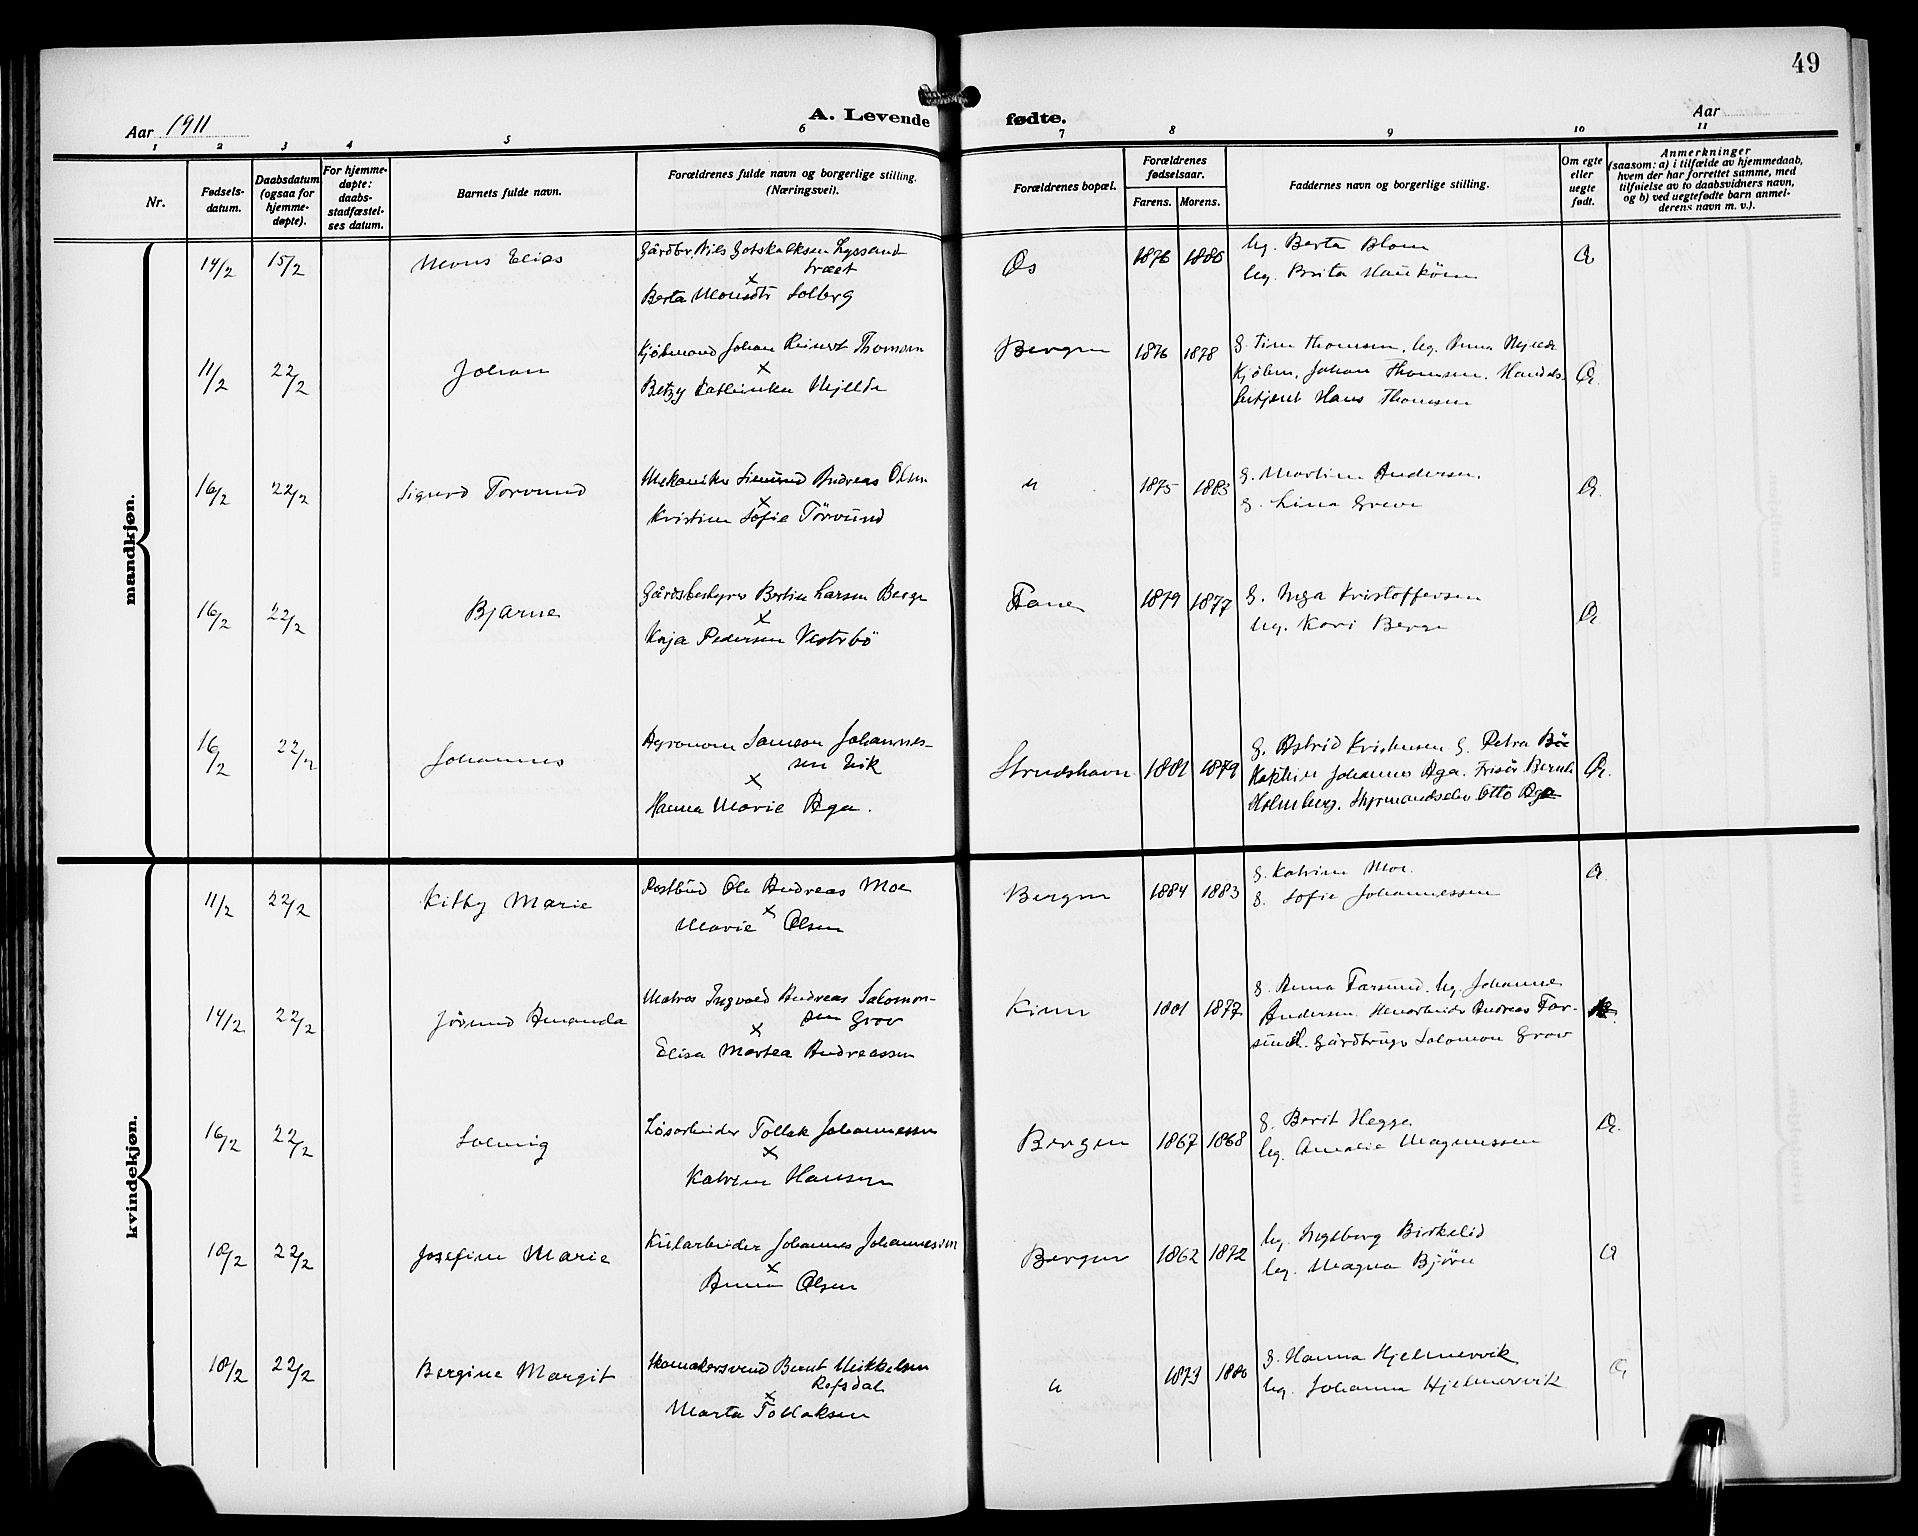 49
Aar 1911
A. Levende fødte.
Aar
1 2 3 4 5 6 7 8 9 10 11
Nr.
Fødselsdatum.
Daabsdatum (ogsaa for hjemmedøpte).
For hjemmedøpte: daabsstadfæstelses datum.
Barnets fulde navn.
Forældrenes fulde navn og borgerlige stilling. (Næringsvei).
Forældrenes bopæl.
Forældrenes fødselsaar.
Farens. Morens.
Faddernes navn og borgerlige stilling.
Om egte eller uegte født.
Anmerkninger (saasom: a) i tilfælde av hjemmedaab, hvem der har forrettet samme, med tilføielse av to daabsvidners navn, og b) ved uegtefødte barn anmelderens navn m. v.).
mandkjøn.
14/2 15/2 Mons Elias
Gårdbr. Nils Gotskalksen Lyssand
træet
x
Berta Monsdtr Solberg
Os 1876 1886
Ug. Berta Blom
Ug. Brita Haukøen
11/2 22/2 Johan
Kjøbmand Johan Reinert Thomsen
x
Betzy Kathinka Mjelde
Bergen 1876 1878
G. Tine Thomsen, Ug. Anna Mjelde
Kjøbm. Johan Thomsen. Handels-
betjent Hans Thomsen
16/2 22/2 Sigurd Torvund
Mekaniker Simund Andreas Olsen
x
Kristine Sofie Torvund
" 1875 1883
G. Martine Andersen.
G. Lina Greve
16/2 22/2 Bjarne
Gårdsbestyrer Bertin Larsen Berge
x
Kaja Pedersen Vestrbö
Fane 1879 1877
G. Inga Kristoffersen
Ug. Kari Berge
16/2 22/2 Johannes
Agronom Samson Johannes-
sen Eik
x
Hanna Marie Aga.
Strudshavn 1881 1879
G. Astrid Kristensen G. Petra Böe
Kaptein Johannes Aga. Frisør Bernh.
Holmberg. Styrmandselev Otto Aga
kvindekjøn.
11/2 22/2 Kitty Marie
Postbud Ole Andreas Moe
x
Marie Olsen
Bergen 1884 1883
G. Katrine Moe.
G. Sofie Johannessen
14/2 22/2 Jørund Amanda
Matros Ingvald Andreas Salomon-
sen Grov
x
Elisa Martea Andreassen
Kinn 1881 1877
G. Anna Farsund. Ug. Johanne
Andersen. Andreas Far-
sund. Gårdbruger Salomon Grov
16/2 22/2 Solveig
Løsarbeider Tollak Johannessen
x
Katrine Hansen
Bergen 1867 1868
G. Berit Hegge.
Ug. Amalie Magnussen
18/2 22/2 Josefine Marie
Kularbeider Johannes Johannessen
x
Anna Olsen
Bergen 1862 1872
Ug. Ingeborg Birkelid
Ug. Magna Bjørn
18/2 22/2 Bergine Margit
Skomakersvend Bernt Mikkelsen
Refsdal
x
Marta Tollaksen
" 1873 1886
G. Hanna Hjelmervik
Ug. Johanna Hjelmervik